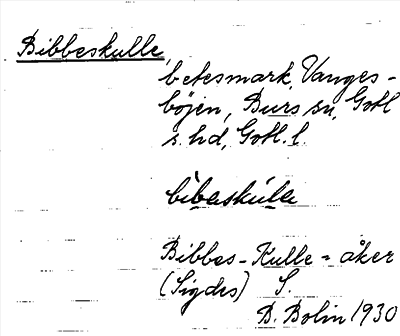 Bibbeskulle,
betesmark, Vanges-
böjen, Burs sn, Gotl
s. hd, Gotl. l.
bìbaskúla
Bibbes-Kulle = åker
(Sigdes) S.
D. Bolin 1930